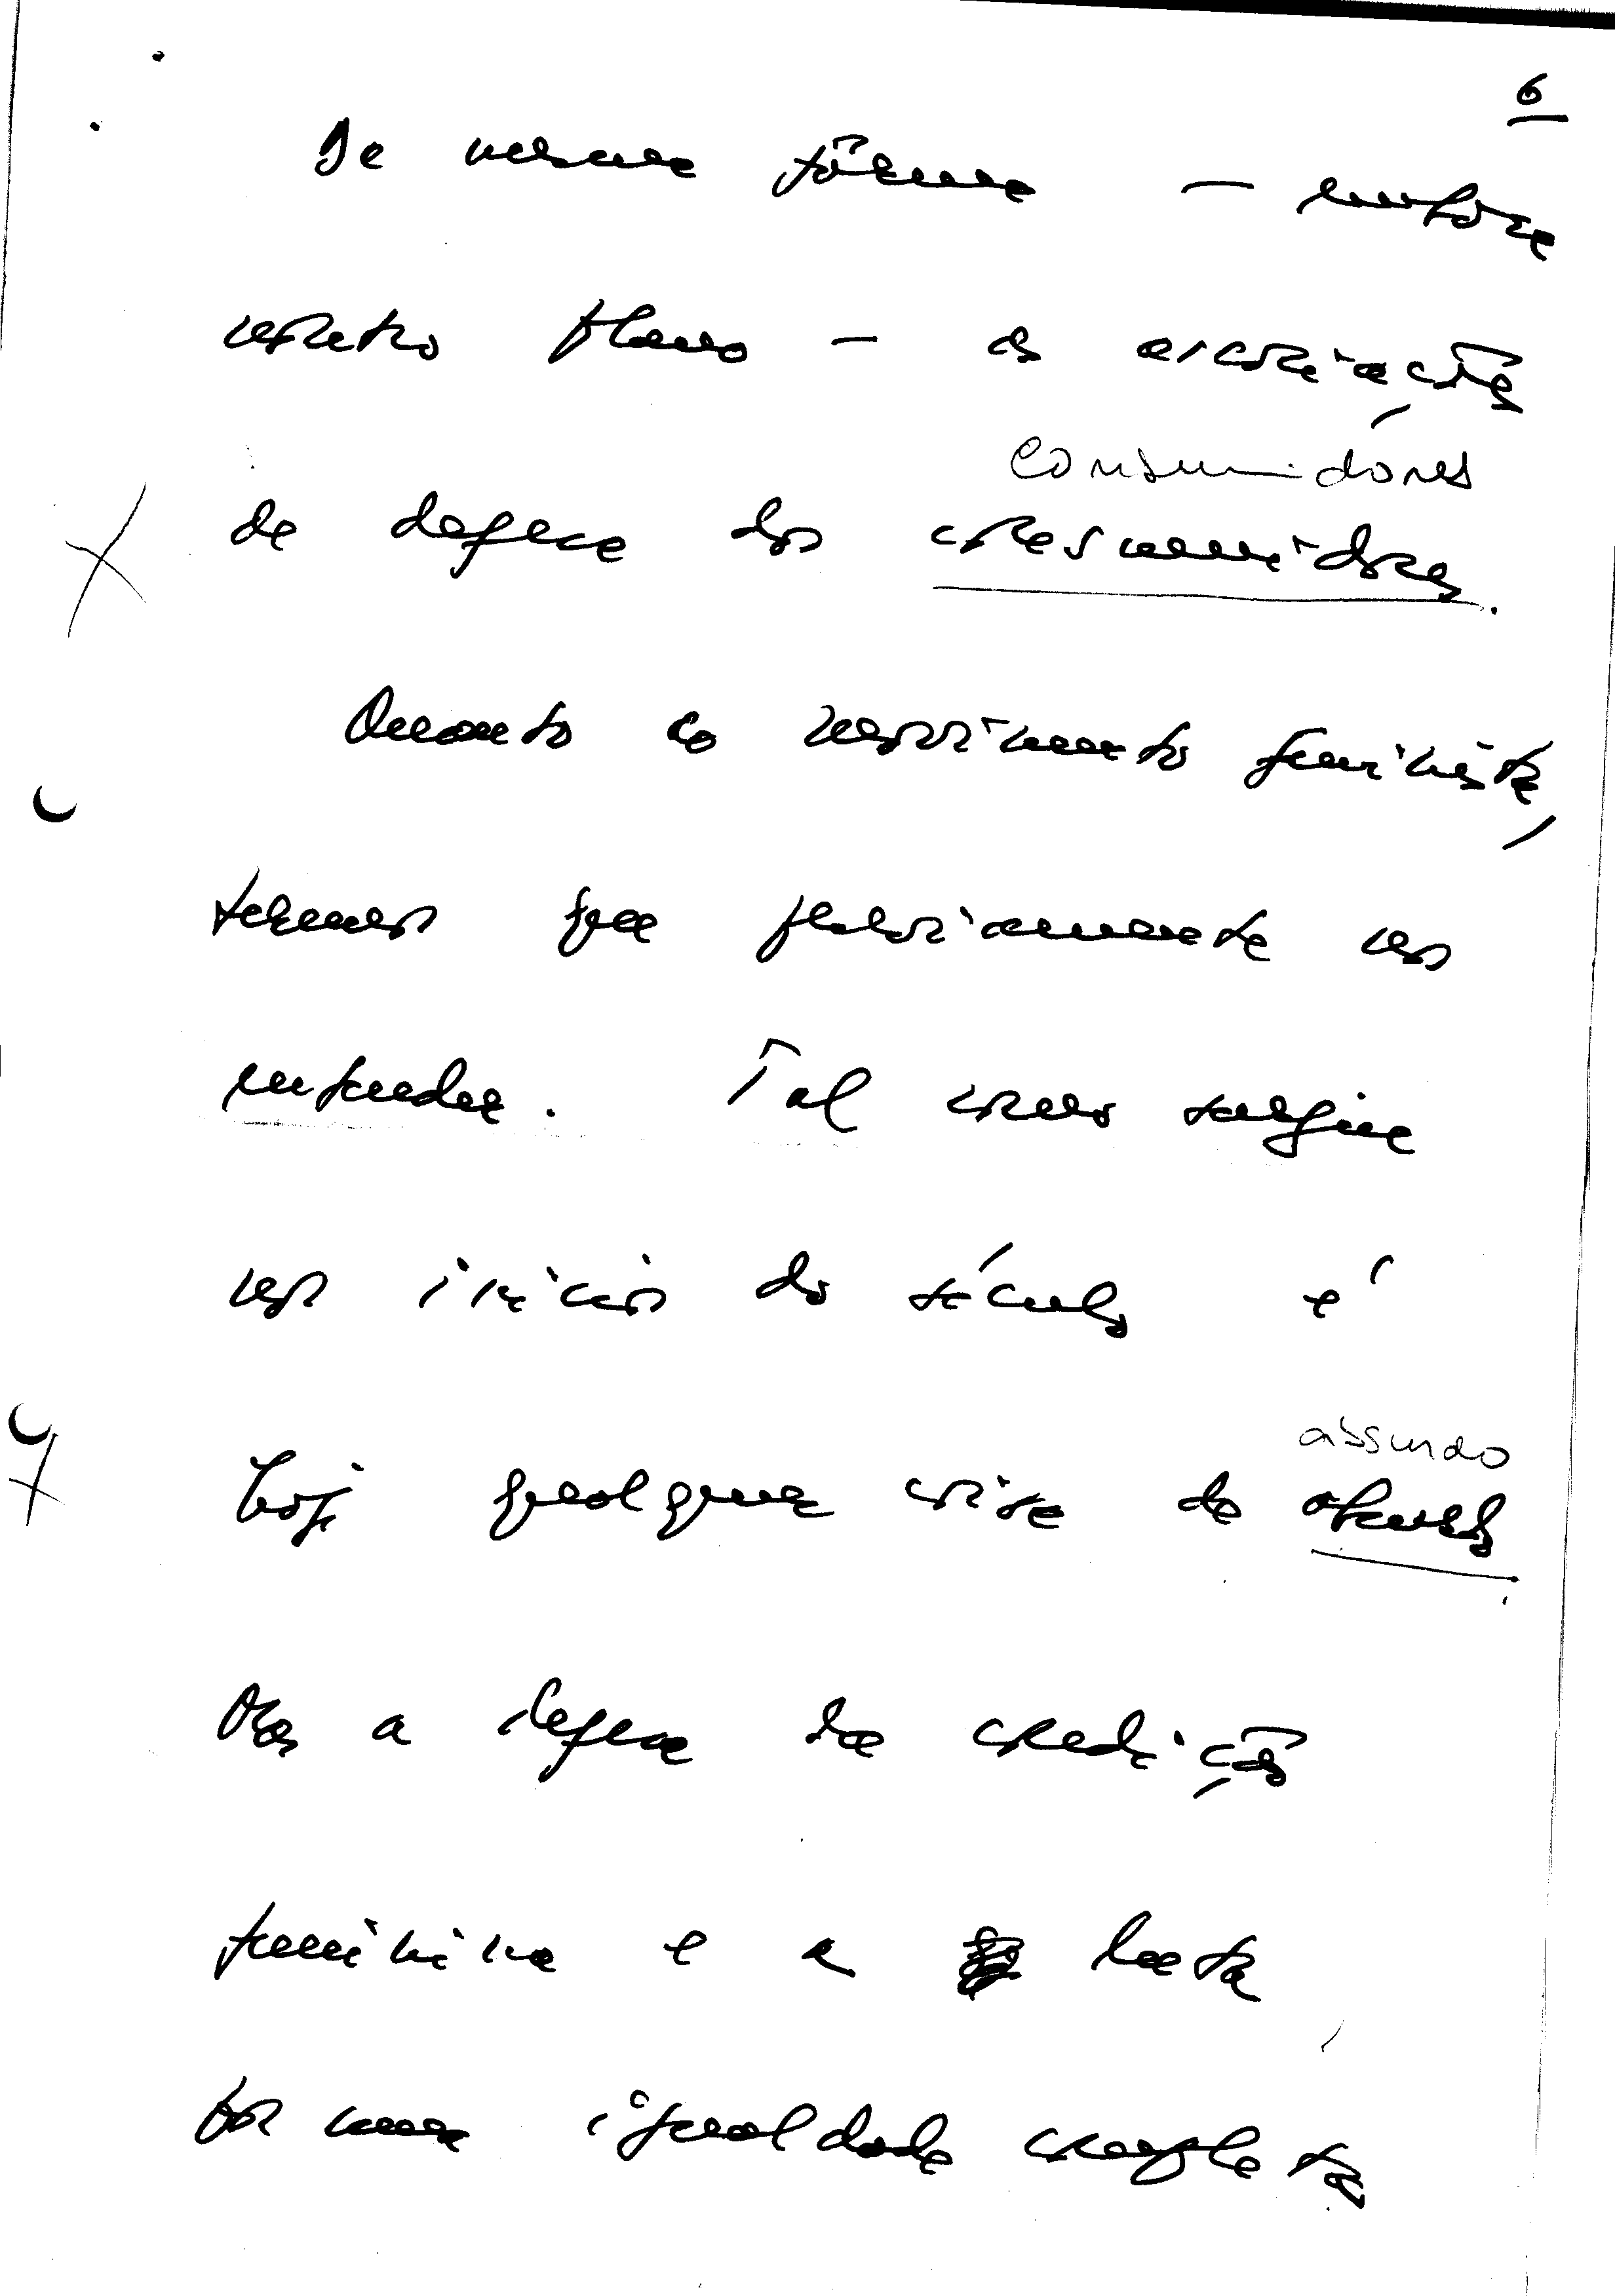 6
De mesma fôrma — embora
noutro plano — as associações
consumidores
de defesa dos consumidores.
Quanto ao movimento feminista,
temos que previamente nos
entender. Tal como surgiu
no início do século é
absurdo
hoje qualquer coisa de absurdo.
Mas a defesa da condição
feminina e a luta
por uma igualdade completa